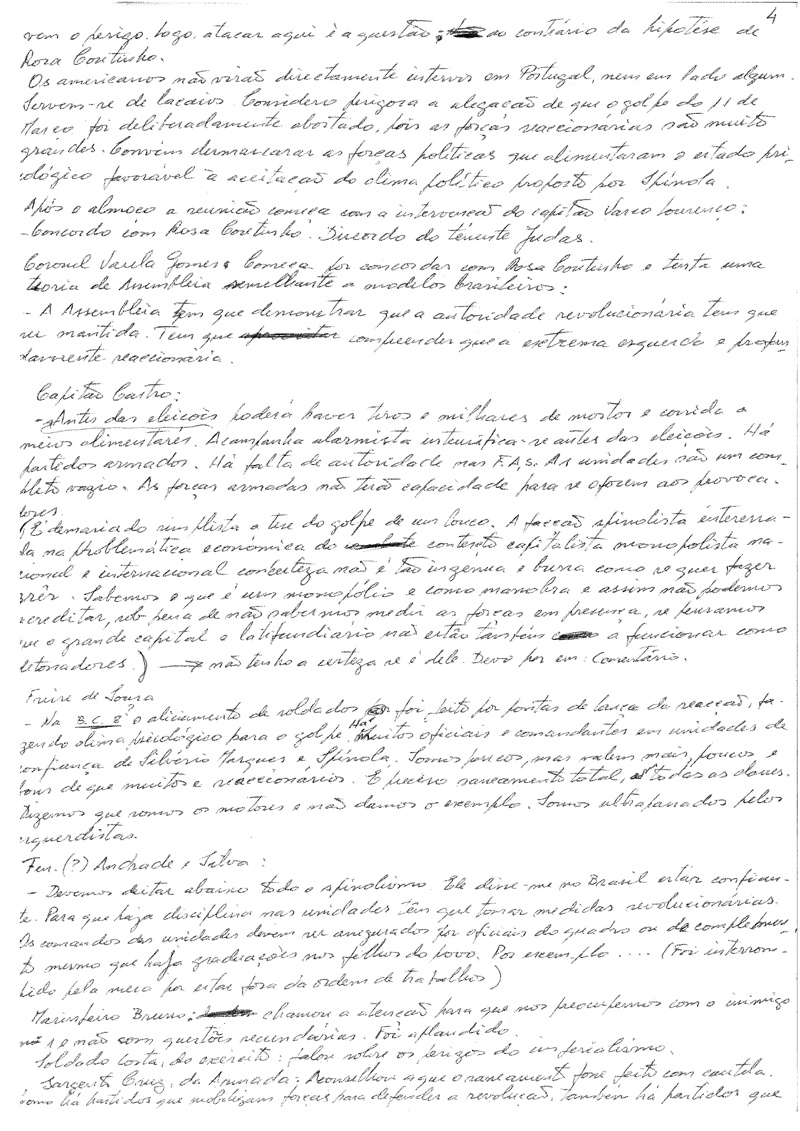 4
vem o perigo. Logo atacar aqui é a questão, ao contrário da hipótese de
Rosa Coutinho.
Os americanos não virão directamente intervir em Portugal, nem em lado algum.
Servem-se de lacaios. Considero perigosa a alegação de que o golpe do 11 de
Março foi deliberadamente abortado, pois as forças reaccionárias são muito
grandes. Convém desmascarar as forças políticas que alimentaram o estado psi-
cológico favorável à aceitação do clima político proposto por Spínola.
Após o almoço a reunião começa com a intervenção do capitão Vasco Lourenço:
- Concordo com Rosa Coutinho. Discordo do tenente Judas.
Coronel Varela Gomes: Começa por concordar com Rosa Coutinho e tenta uma
teoria de Assembleia semelhante a modelos brasileiros:
- A Assembleia tem que demonstrar que a autoridade revolucionária tem que
ser mantida. Tem que compreender que a extrema esquerda é profun-
damente reaccionária.
Capitão Castro:
- Antes das eleições poderá haver tiros e milhares de mortos e corrida a
meios alimentares. A campanha alarmista intensifica-se antes das eleições. Há
partidos armados. Há falta de autoridade nas F.A.s. As unidades são um com-
pleto vazio. As forças armadas não terão capacidade para se oporem aos provoca-
dores.
(É demasiado simplista a tese do golpe de um louco. A facção spinolista interessa-
da na problemática económica do contexto capitalista monopolista na-
cional e internacional concerteza não é tão ingénua e burra como se quer fazer
crêr. Sabemos o que é um monopólio e como manobra e assim não podemos
acreditar, sob pena de não sabermos medir as forças em presença, se pensarmos
que o grande capital e latifundiário não estão também a funcionar como
detonadores.) → não tenho a certeza se é dele. Devo por em: Comentário.
Freire de Sousa
- Na B.C. 8? o aliciamento de soldados foi feito por pontas de lança da reacção, fa-
zendo clima psicológico para o golpe. Há muitos oficiais e comandantes em unidades de
confiança de Silvério Marques e Spínola. Somos poucos, mas valem mais poucos e
bons do que muitos e reaccionários. É preciso saneamento total, a todas as classes.
Dizemos que somos os motores e não damos o exemplo. Somos ultrapassados pelos
esquerdistas.
Fen. (?) Andrade e Silva:
- Devemos deitar abaixo todo o spinolismo. Ele disse-me no Brasil estar confian-
te. Para que haja disciplina nas unidades têm que tomar medidas revolucionárias.
Os comandos das unidades devem ser assegurados por oficiais do quadro ou de complemen-
to mesmo que haja graduações nos filhos do povo. Por exemplo .... (Foi interrom-
pido pela mesa por estar fora da ordem de trabalhos)
Marinheiro Bruno: chamou a atenção para que nos preocupemos com o inimigo
nº 1 e não com questões secundárias. Foi aplaudido.
Soldado Costa, do exército: falou sobre os perigos do imperialismo.
Sargento Cruz, da Armada: Aconselhou a que o saneamento fosse feito com cautela.
Como há partidos que mobilizam forças para defender a revolução, também há partidos que